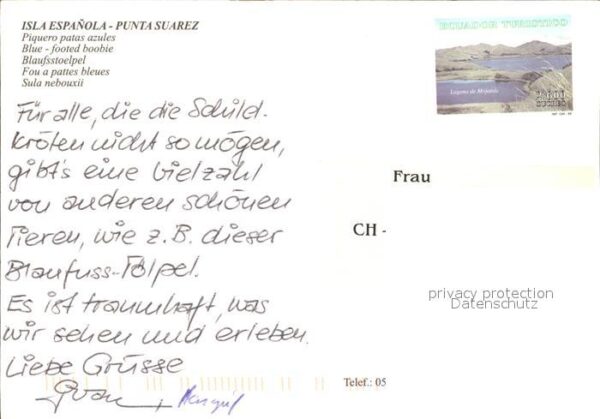 ISLA ESPAÑOLA - PUNTA SUAREZ
Piquero patas azules
Blue - footed boobie
Blaufsstoelpel
Fou a pattes bleues
Sula nebouxii
ECUADOR TURISTICO
Laguna de Mojanda
SUCRES
Für alle, die die Schild-
kröten nicht so mögen,
gibt's eine Vielzahl
von anderen schönen
Tieren, wie z.B. dieser
Blaufuss-Tölpel.
Es ist traumhaft, was
wir sehen und erleben.
Liebe Grüsse
Frau
CH -
privacy protection
Datenschutz
Telef.: 05